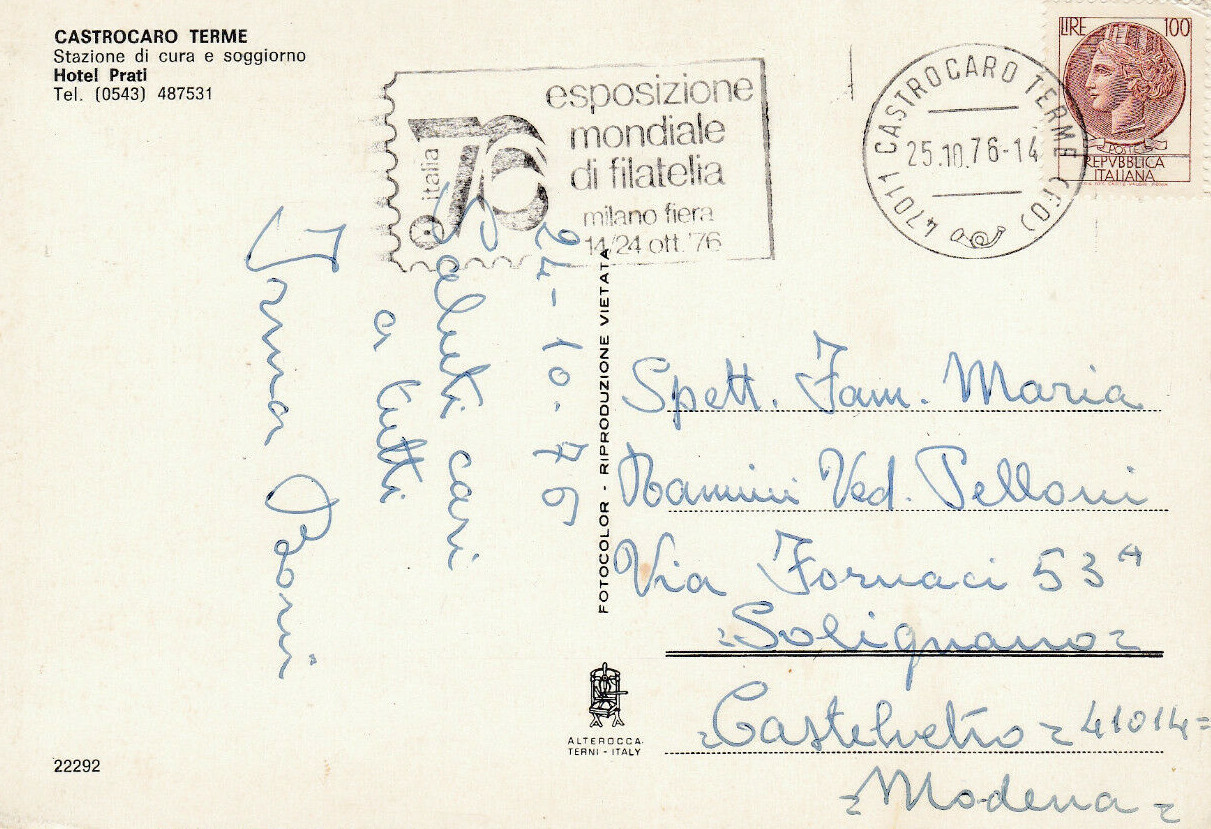 CASTROCARO TERME
Stazione di cura e soggiorno
Hotel Prati
Tel. (0543) 487531
italia
76
esposizione
mondiale
di filatelia
milano fiera
14/24 ott. '76
47011 CASTROCARO TERME (FO)
25.10.76-14
LIRE 100
POSTE
REPVBBLICA
ITALIANA
24-10-76
Saluti cari
a tutti
Irma
FOTOCOLOR - RIPRODUZIONE VIETATA
Spett. Fam. Maria
Ved. Pelloni
Via Fornaci 53A
Solignano
Castelvetro 41014
Modena
ALTEROCCA
TERNI - ITALY
22292